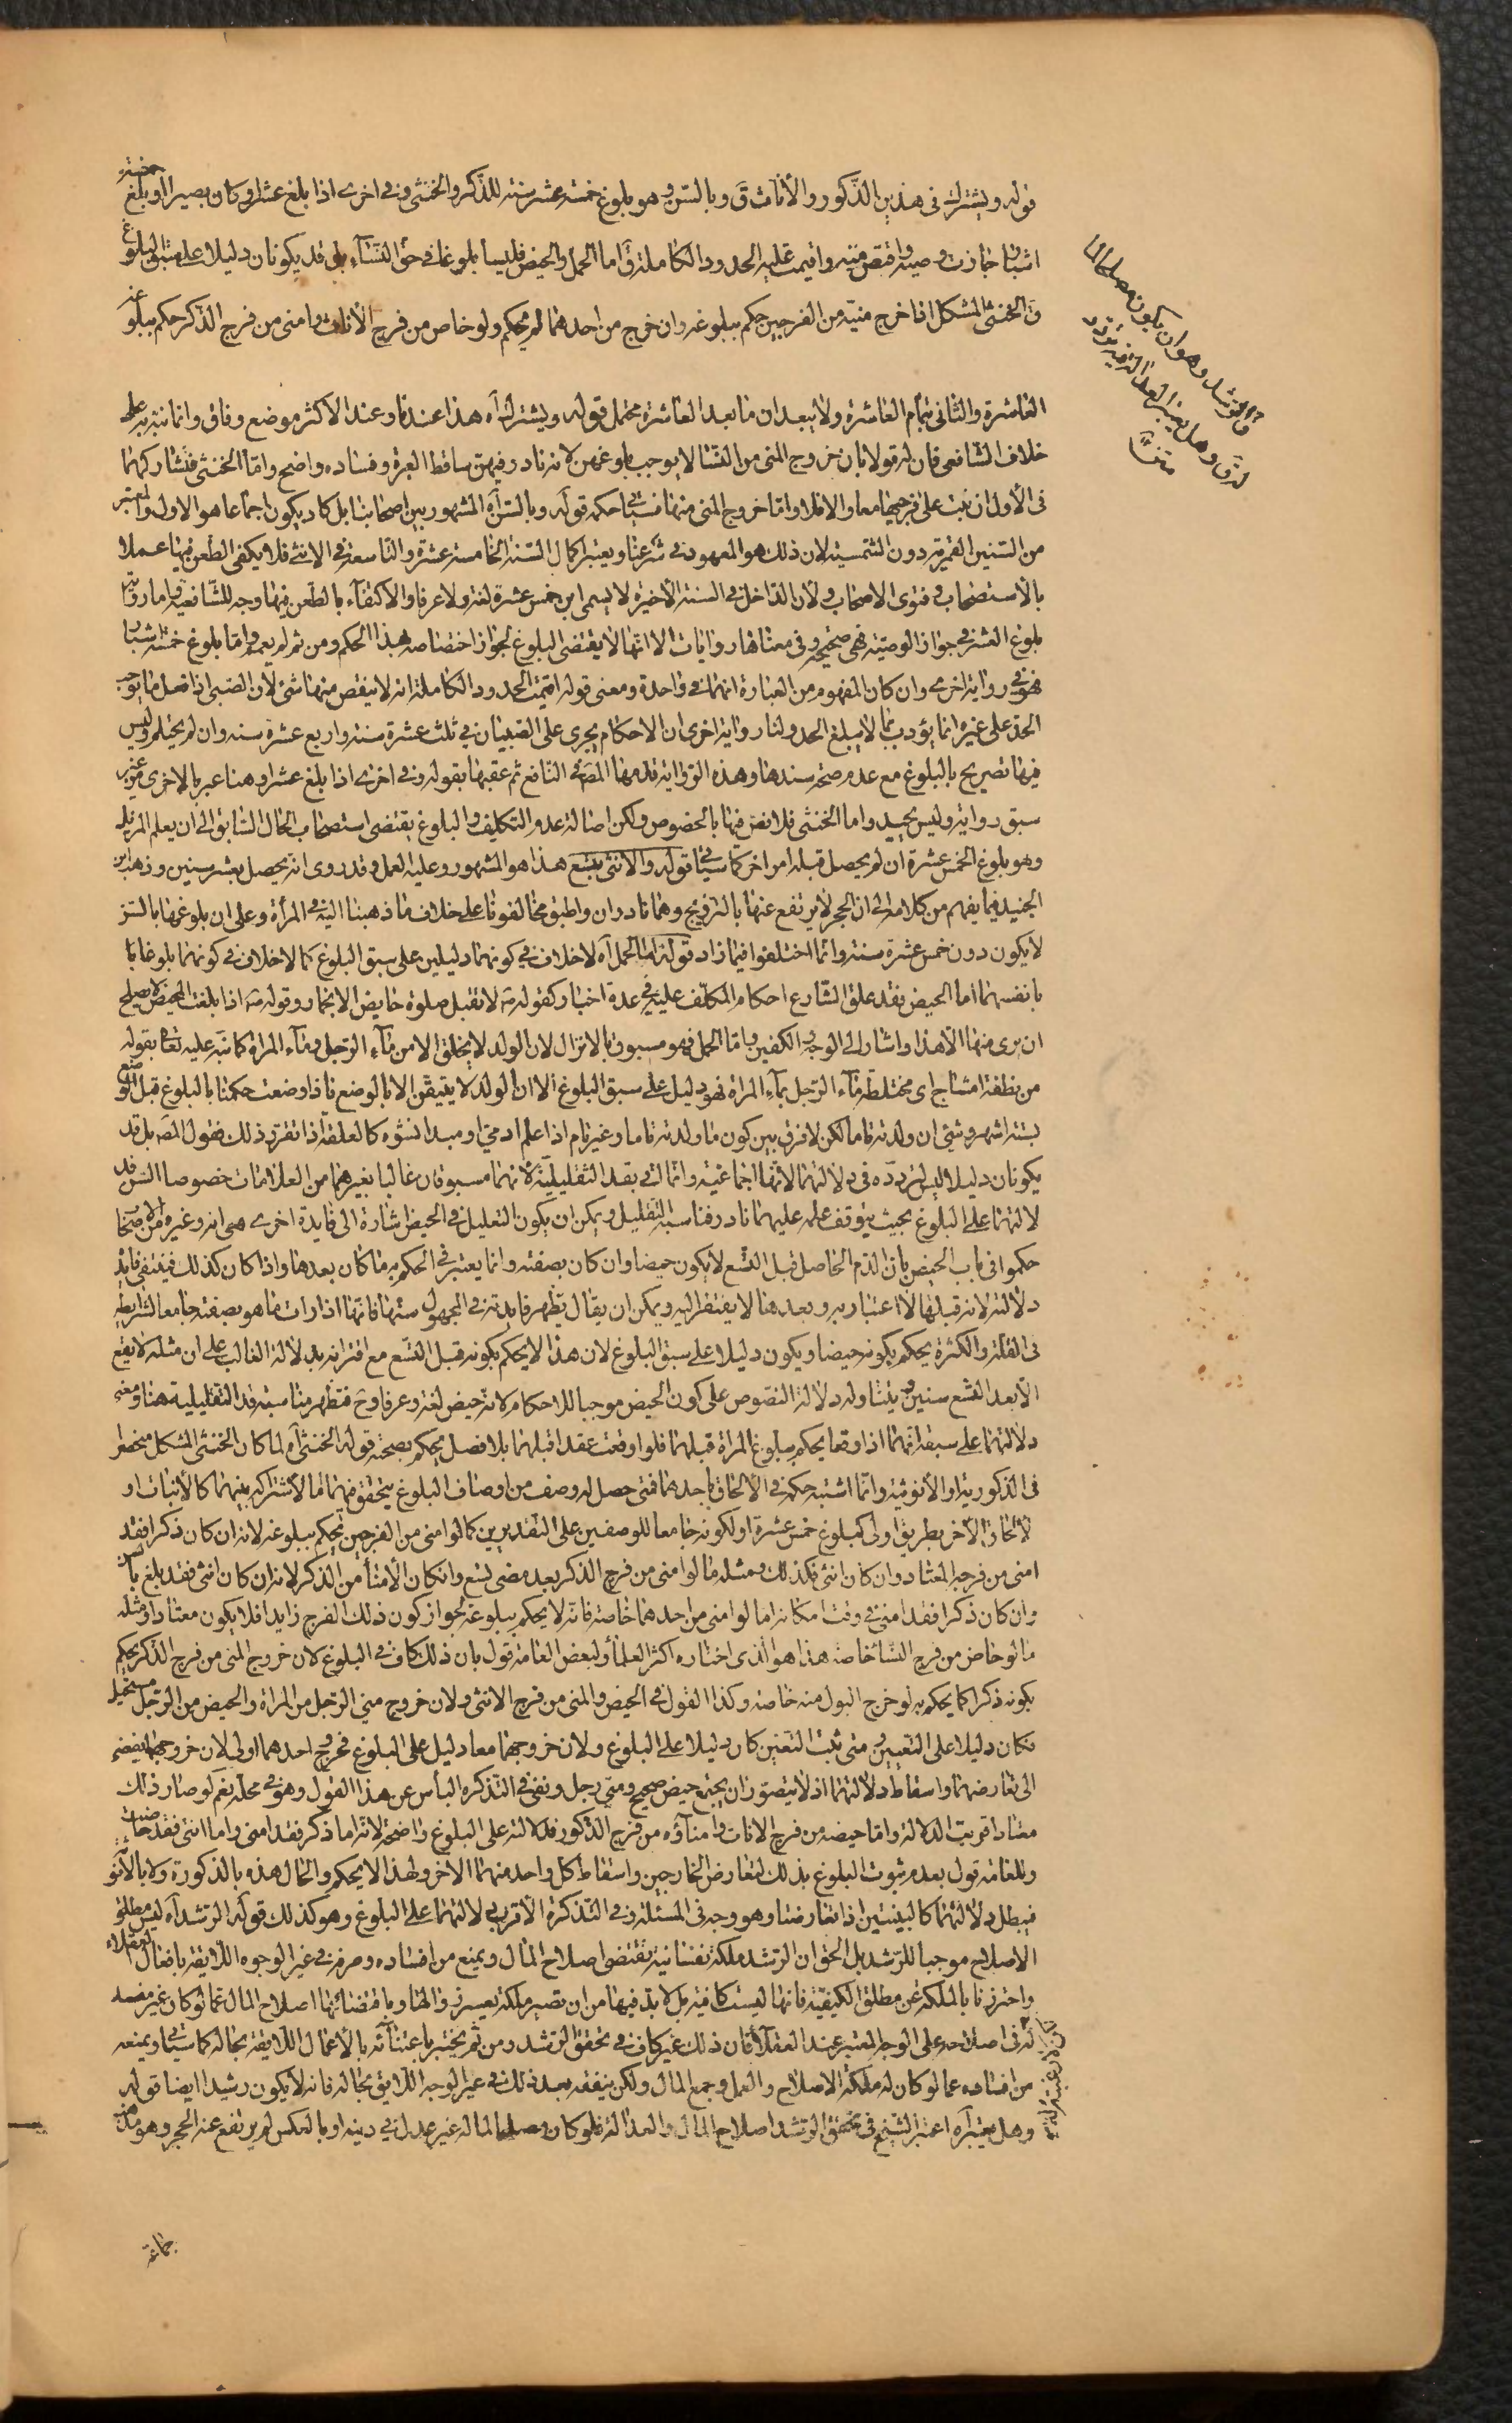 قوله ويشترك في هذين الذكور والأناث ق وبالسن وهو بلوغ خمسة عشر سنة للذكر والخنثى وفي اخرى اذا بلغ عشرا وكان بصيرا او بلغ خمسة
اشبار جازت وصيته واقتص منه واقيمت عليه الحدود الكاملة ق اما الحمل والحيض فليسا بلوغا في حق النساء بل قد يكونان دليلا على سبق البلوغ
ق الخنثى المشكل اذا خرج منيه من الفرجين حكم ببلوغه وان خرج من احدهما لم يحكم ولو حاض من فرج الأناث وامنى من فرج الذكر حكم ببلوغه
ق الرشد وهو ان يكون مصلحا لما
له ق وهل يعتبر العدالة فيه تردد
العاشرة والثاني بتمام العاشرة ولا يبعد ان ما بعد العاشرة محتمل قوله ويشترك آه هذا عندنا وعند الاكثر موضع وفاق وانما نبه به على
خلاف الشافعي فان له قولا بان خروج المني من النسا لا يوجب بلوغهن لانه نادر فيهن ساقط العبرة وفساده واضح واما الخنثى فتشاركهما
في الأول ان نبت على فرجيها معا والا فلا واما خروج المني منها فسيأتي حكمه قوله وبالسن آه المشهور بين اصحابنا بل كاد يكون اجماعا هو الاول والمعتبر
من السنين القمرية دون الشمسية لان ذلك هو المعهود في شرعنا ويعتبر اكمال السنة الخامسة عشرة والتاسعة في الانثى فلا يكفي الطعن فيها عملا
بالأستصحاب وفتوى الاصحاب ولأن الداخل في السنة الأخيرة لا يسمى ابن خمس عشرة لغة ولا عرفا والاكتفاء بالطعن فيها وجه للشافعية واما رواية
بلوغ العشر في جواز الوصية فهي صحيحة وفي معناها روايات الا انها لا يقتضى البلوغ لجواز اختصاصه بهذا الحكم ومن ثم لم يعمم واما بلوغ خمسة اشبار
فهو في رواية اخرى وان كان المفهوم من العبارة انهما في واحدة ومعنى قوله اقيمت الحدود الكاملة انه لا ينقص منها شئ لأن الصبي اذا فعل ما يوجب
الحد على غيره انما يؤدب بما لا يبلغ الحد ولنا رواية اخرى ان الاحكام يجري على الصبيان في ثلث عشرة سنة واربع عشرة سنة وان لم يحتلم وليس
فيها تصريح بالبلوغ مع عدم صحة سندها وهذه الرواية قدمها المصنف في النافع ثم عقبها بقوله وفي اخرى اذا بلغ عشرا وهنا عبر بالاخرى من غير
سبق رواية وليس بجيد واما الخنثى فلا نص فيها بالخصوص ولكن اصالة عدم التكليف والبلوغ يقتضى استصحاب الحال السابق الى ان يعلم المزيل
وهو بلوغ الخمس عشرة ان لم يحصل قبله امر اخر كما سيأتي قوله والانثى بتسع هذا هو المشهور وعليه العمل وقد روى انه يحصل بعشر سنين وذهب ابن
الجنيد فيما يفهم من كلامه الى ان الحجر لا يرتفع عنها بالتزويج وهما نادران واطبق مخالفونا على خلاف ما ذهبنا اليه في المرأة وعلى ان بلوغها بالسن
لا يكون دون خمس عشرة سنة وانما اختلفوا فيما زاد قوله اما الحمل آه لا خلاف في كونهما دليلين على سبق البلوغ كما لا خلاف في كونهما بلوغا
بانفسهما اما الحيض فقد علق الشارع احكام المكلف عليه في عدة اخبار كقوله ص لا تقبل صلوة حايض الا بخمار وقوله ص اذا بلغت المحيض لا يصلح
ان يرى منها الا هذا واشار الى الوجه والكفين واما الحمل فهو مسبوق بالانزال لان الولد لا يخلق الا من ماء الرجل وماء المرأة كما نبه عليه تعالى بقوله
من نطفة امشاج اى مختلطة ماء الرجل بماء المرأة فهو دليل على سبق البلوغ الا ان الولد لا يتيقن الا بالوضع فاذا وضعت حكمنا بالبلوغ قبل الوضع
بستة اشهر وشئ ان ولدته تاما لكن لا فرق بين كون ما ولدته تاما وغير تام اذا علم ادمي او مبدا نشوه كالعلقة اذا تقرر ذلك فقول المص بل قد
يكونان دليلا ليس لتردده في دلالتهما لأنها اجماعية وانما اتى بقد التقليلية لانهما مسبوقان غالبا بغيرهما من العلامات خصوصا السن فقد
لالتهما على البلوغ بحيث يتوقف علمه عليهما نادر فناسبه التقليل ويمكن ان يكون التعليل في الحيض اشارة الى فايدة اخرى هي انه وغيره من الاصحاب
حكموا في باب الحيض بان الدم الحاصل قبل التسع لا يكون حيضا وان كان بصفته وانما يعتبر في الحكم به ما كان بعدها واذا كان كذلك فينتفي فايدة
دلالته لانه قبلها لا اعتبار به وبعدها لا يفتقر اليه ويمكن ان يقال يظهر فايدته في المجهول سنها فانها اذا رات ما هو بصفته جامعا لشرايطه
في القلة والكثرة يحكم بكونه حيضا ويكون دليلا على سبق البلوغ لان هذا لا يحكم بكونه قبل التسع مع اقترانه بدلالة الغالب على ان مثله لا يقع
الا بعد التسع سنين ويتناوله دلالة النصوص على كون الحيض موجبا للاحكام لانه حيض لغة وعرفا وح فتظهر مناسبة قد التقليلية هنا ومعنى
دلالتهما على سبقه انهما اذا وقعا يحكم ببلوغ المرأة قبلهما فلو اوقعت عقدا قبلهما بلا فصل يحكم بصحته قوله الخنثى آه لما كان الخنثى المشكل منحصرا
في الذكورية او الأنوثية وانما اشتبه حكمه في الألحاق باحدهما فمتى حصل له وصف من اوصاف البلوغ يتحقق فيهما اما لاشتراكه بينهما كالأنبات او
لالحاق الأخر بطريق اولى كبلوغ خمس عشرة او لكونه جامعا للوصفين على التقديرين كما لو امنى من الفرجين يحكم ببلوغه لانه ان كان ذكرا فقد
امنى من فرجه المعتاد وان كان انثى فكذلك ومثله ما لو امنى من فرج الذكر بعد مضى تسع وانكان الأمنأ من الذكر لانه ان كان انثى فقد بلغ بالسن
وان كان ذكرا فقد امنى في وقت امكانه اما لو امنى من احدهما خاصة فانه لا يحكم ببلوغه لجواز كون ذلك الفرج زايدا فلا يكون معتادا ومثله
ما لو حاض من فرج النسا خاصة هذا هو الذى اختاره اكثر العلمأ ولبعض العامة قول بان ذلك كاف في البلوغ لان خروج المني من فرج الذكر يحكم
بكونه ذكرا كما يحكم به لو خرج البول منه خاصة وكذا القول في الحيض والمني من فرج الانثى ولان خروج مني الرجل من المرأة والحيض من الرجل مستحيل
فكان دليلا على التعيين ومتى ثبت التعين كان دليلا على البلوغ ولان خروجهما معا دليل على البلوغ فخروج احدهما اولى لان خروجهما يفضى
الى تعارضهما واسقاط دلالتهما اذ لا يتصور ان يجتمع حيض صحيح ومني رجل ونفى في التذكرة البأس عن هذا القول وهو في محله نعم لو صار ذلك
معتادا قويت الدلالة واما حيضه من فرج الاناث وامناؤه من فرج الذكور فدلالته على البلوغ واضحة لانه اما ذكر فقد امنى واما انثى فقد حاضت
وللعامة قول بعدم ثبوت البلوغ بذلك لتعارض الخارجين واسقاط كل واحد منهما الاخر ولهذا لا يحكم والحال هذه بالذكورة ولا بالأنوثة
فيبطل دلالتهما كالبينتين اذا تعارضتا وهو وجه في المسئلة وفي التذكرة الأقرب دلالتهما على البلوغ وهو كذلك قوله الرشد آه ليس مطلق
الاصلاح موجبا للرشد بل الحق ان الرشد ملكة نفسانية تقتضى اصلاح المال ويمنع من افساده وصرفه في غير الوجوه اللايقة بافعال العقلاء
واحترزنا بالملكة عن مطلق الكيفية فانها ليست كافية بل لا بد فيها من ان تصير ملكة يعسر زوالها وباقتضائها اصلاح المال عما لو كان غير مفسد
له في اصلاحه على الوجه المعتبر عند العقلأ فان ذلك غير كاف في تحقق الرشد ومن ثم يختبر باعتنائه بالأعمال اللايقة بحاله كما سيأتي وبمنعه
من افساده عما لو كان له ملكة الاصلاح والعمل وجمع المال ولكن ينفقه بعد ذلك في غير الوجه اللايق بحاله فانه لا يكون رشيدا ايضا قوله
وهل يعتبر آه اعتبر الشيخ في تحقق الرشد اصلاح المال والعدالة فلو كان مصلحا لماله غير عدل في دينه او بالعكس لم يرتفع عنه الحجر وهو مذهب
جماعة